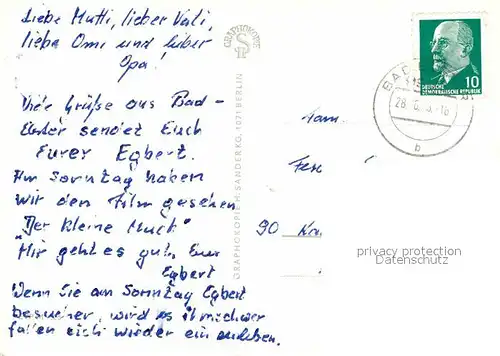 Liebe Mutti, lieber Vati,
liebe Omi und lieber
Opa!
Viele Grüße aus Bad-
Elster sendet Euch
Eurer Egbert.
Am Sonntag haben
wir den Film gesehen
"Der kleine Muck"
Mir geht es gut, Eur
Egbert
Wenn Sie am Sonntag Egbert
besuchen, wird es ihm schwer
fallen sich wieder ein
GRAPHOKOPIE
GRAPHOKOPIE H. SANDER KG · 1071 BERLIN
Fam.
90
DEUTSCHE
DEMOKRATISCHE REPUBLIK
10
BAD
b
privacy protection
Datenschutz